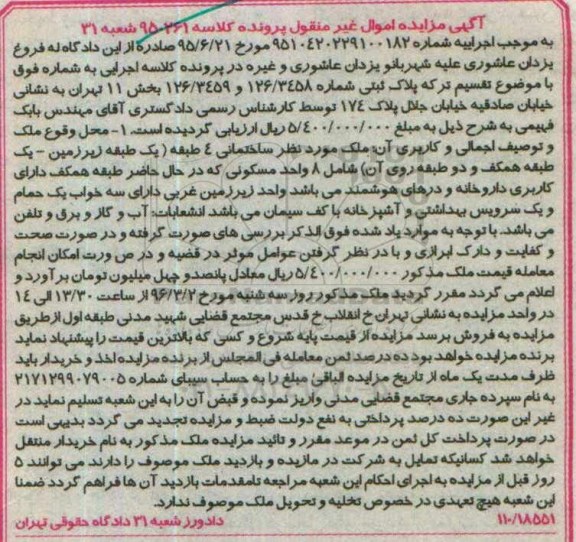 آگهی مزایده اموال غیر منقول پرونده کلاسه ۳۶۱-۹۵ شعبه ۳۱
به موجب اجراییه شماره ۹۵۱۰۴۲۰۲۲۹۱۰۰۱۸۲ مورخ ۹۵/۶/۲۱ صادره از این دادگاه له فروغ
یزدان عاشوری علیه شهربانو یزدان عاشوری و غیره در پرونده کلاسه اجرایی به شماره فوق
با موضوع تقسیم ترکه پلاک ثبتی شماره ۱۲۶/۳۴۵۸ و ۱۲۶/۳۴۵۹ بخش ۱۱ تهران به نشانی
خیابان صادقیه خیابان جلال پلاک ۱۷۴ توسط کارشناس رسمی دادگستری آقای مهندس بابک
فهیمی به شرح ذیل به مبلغ ۵/۴۰۰/۰۰۰/۰۰۰ ریال ارزیابی گردیده است. ۱- محل وقوع ملک
و توصیف اجمالی و کاربری آن: ملک مورد نظر ساختمانی ٤ طبقه (یک طبقه زیرزمین - یک
طبقه همکف و دو طبقه روی آن) شامل ۸ واحد مسکونی که در حال حاضر طبقه همکف دارای
کاربری داروخانه و درهای هوشمند می باشد واحد زیرزمین غربی دارای سه خواب یک حمام
و یک سرویس بهداشتی و آشپزخانه با کف سیمان می باشد انشعابات: آب و گاز و برق و تلفن
می باشد. با توجه به موارد یاد شده فوق الذکر بررسی های صورت گرفته و در صورت صحت
و کفایت و دارک ابرازی و با در نظر گرفتن عوامل موثر در قضیه و در ص ورت امکان انجام
معامله قیمت ملک مذکور ۵/۴۰۰/۰۰۰/۰۰۰ ریال معادل پانصدو چهل میلیون تومان برآورد و
اعلام می گردد مقرر گردید ملک مذکور روز سه شنبه مورخ ۹۶/۳/۲ از ساعت ۱۳/۳۰ الی ۱۴
در واحد مزایده به نشانی تهران خ انقلاب خ قدس مجتمع قضایی شهید مدنی طبقه اول از طریق
مزایده به فروش برسد مزایده از قیمت پایه شروع و کسی که بالاترین قیمت را پیشنهاد نماید
برنده مزایده خواهد بود ده درصد ثمن معامله فی المجلس از برنده مزایده اخذ و خریدار باید
ظرف مدت یک ماه از تاریخ مزایده الباقی مبلغ را به حساب سیبای شماره ۲۱۷۱۲۹۹۰۷۹۰۰۵
به نام سپرده جاری مجتمع قضایی مدنی واریز نموده و قبض آن را به این شعبه تسلیم نماید در
غیر این صورت ده درصد پرداختی به نفع دولت ضبط و مزایده تجدید می گردد بدیهی است
در صورت پرداخت کل ثمن در موعد مقرر و تائید مزایده ملک مذکور به نام خریدار منتقل
خواهد شد کسانیکه تمایل به شرکت در مازیده و بازدید ملک موصوف را دارند می توانند ۵
روز قبل از مزایده به اجرای احکام این شعبه مراجعه تامقدمات بازدید آن ها فراهم گردد ضمنا
این شعبه هیچ تعهدی در خصوص تخلیه و تحویل ملک موصوف ندارد.
۱۱۰/۱۸۵۵۱ دادورز شعبه ۳۱ دادگاه حقوقی تهران